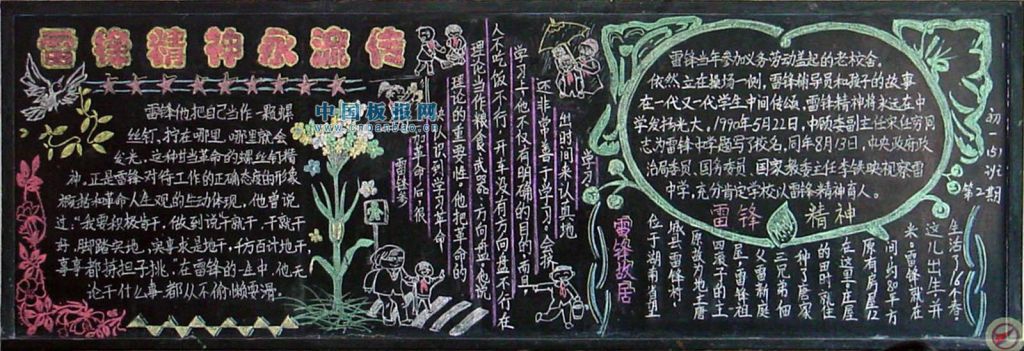 雷锋精神永流传
雷锋他把自己当作一颗螺
丝钉,拧在哪里,哪里就会
发光,这种甘当革命的螺丝钉精
神,正是雷锋对待工作的正确态度的形象
概括和革命人生观的生动体现,他曾说
过:“我要积极苦干,做到说干就干,干就干
好,脚踏实地,实事求是地干,千方百计地干
事事都拣担子挑。”在雷锋的一生中,他无
论干什么事,都从不偷懒耍滑。
中国板报网
雷锋参
加革命后,很
快认识到学习革命
理论的重要性。他把革命的
理论当作粮食、武器、方向盘。他说
人不吃饭不行,开车没有方向盘不行
学习上他不仅有明确的目的,而且
还非常善于学习,会挤
出时间来认真地
学习
雷锋当年参加义务劳动盖起的老校舍,
依然立在操场一侧,雷锋辅导员和孩子的故事
在一代又一代学生中间传颂,雷锋精神将永远在中
学发扬光大。1990年5月22日,中顾委副主任宋任穷同
志为雷锋中学题写了校名,同年8月13日,中央政府政
治局委员、国务委员、国家教委主任李铁映视察雷
中学,充分肯定学校以雷锋精神育人。
雷锋精神
初一15班
第2期
雷锋故居
位于湖南省望
城县雷锋村,
原故为地主唐
四滚子的土
屋,雷锋祖
父雷新庭
三兄弟佃
种了唐家
的田时就住
在这里,庄屋
原有房屋12
间,约80平方
米。雷锋就在
这儿出生,并
生活了16个春